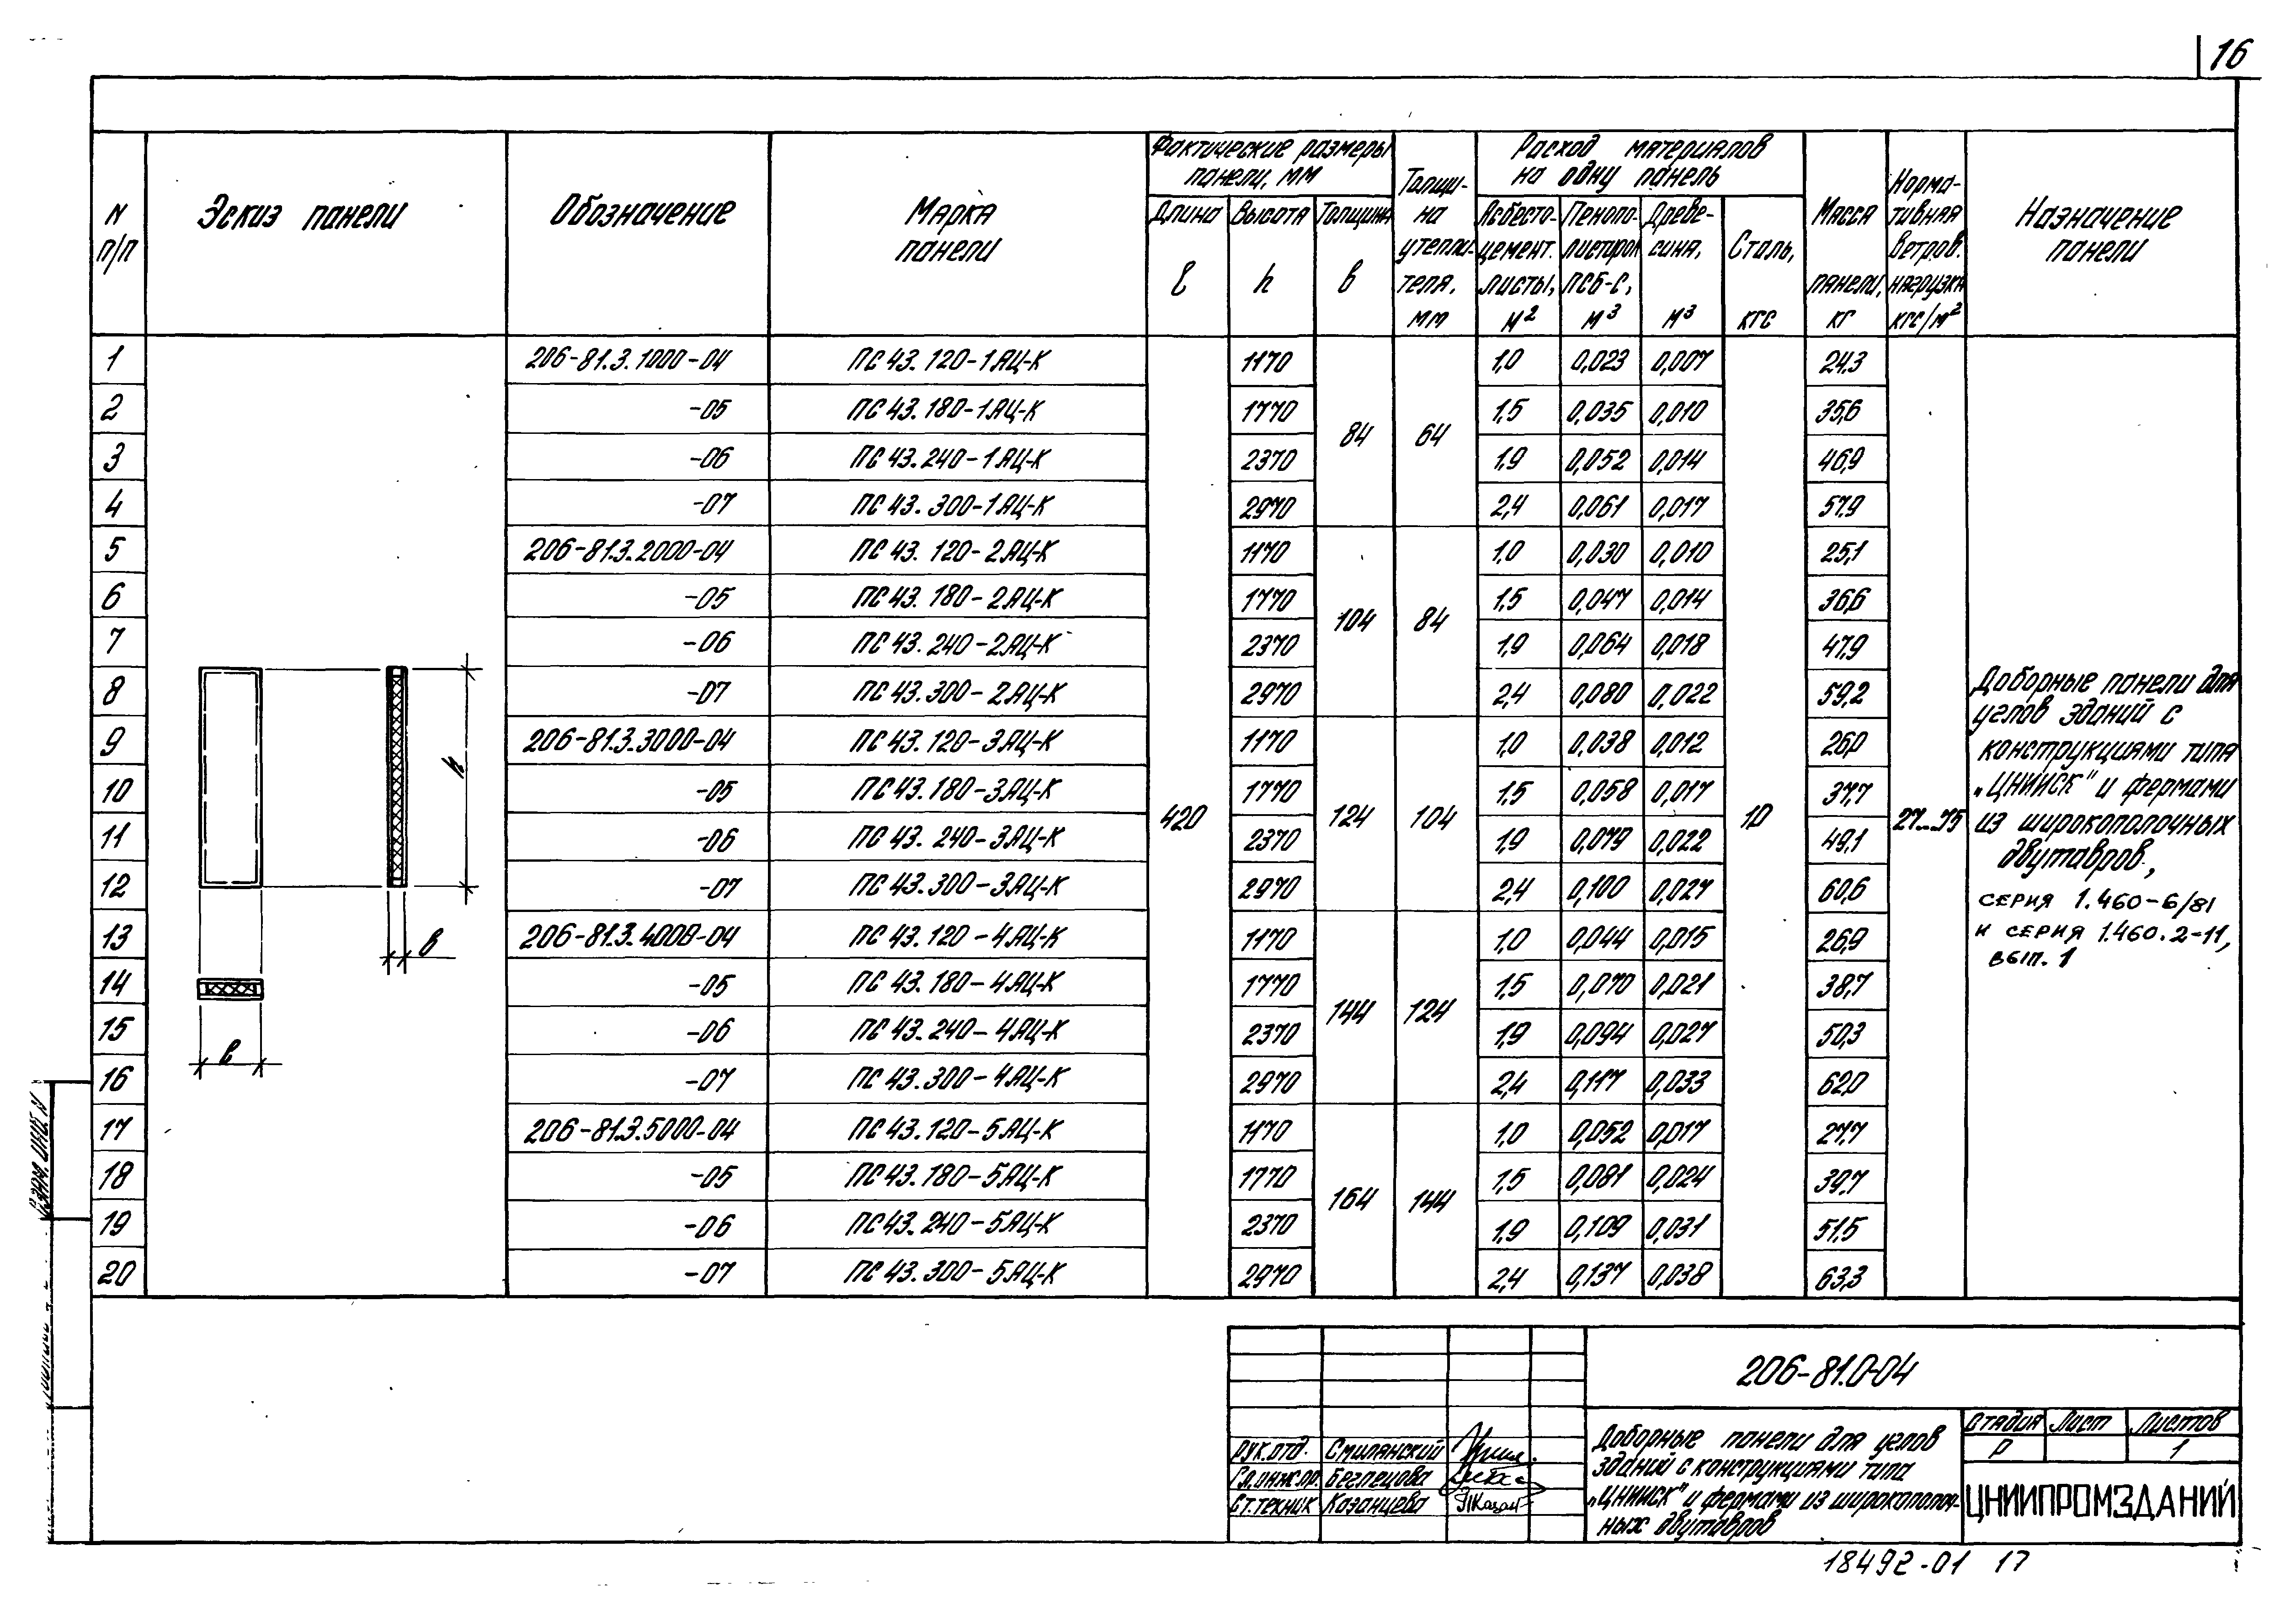 16
N п/п
Эскиз панели
Обозначение
Марка панели
Фактические размеры панели, мм
Длина l
Высота h
Толщина в
Толщи-на утепли-теля, мм
Расход материалов на одну панель
Асбесто-цемент. листы, м²
Пенопо-листирол ПСБ-С, м³
Древе-сина, м³
Сталь, кгс
Масса панели, кг
Норма-тивная ветров. нагрузка кгс/м²
Назначение панели
1 206-81.3.1000-04 ПС 43.120-1АЦ-К 1170 1,0 0,023 0,007 24,3
2 -05 ПС 43.180-1АЦ-К 1770 1,5 0,035 0,010 35,6
84 64
3 -06 ПС 43.240-1АЦ-К 2370 1,9 0,052 0,014 46,9
4 -07 ПС 43.300-1АЦ-К 2970 2,4 0,061 0,017 57,9
5 206-81.3.2000-04 ПС 43.120-2АЦ-К 1170 1,0 0,030 0,010 25,1
6 -05 ПС 43.180-2АЦ-К 1770 1,5 0,047 0,014 36,6
104 84
7 -06 ПС 43.240-2АЦ-К 2370 1,9 0,064 0,018 47,9
8 -07 ПС 43.300-2АЦ-К 2970 2,4 0,080 0,022 59,2
9 206-81.3.3000-04 ПС 43.120-3АЦ-К 1170 1,0 0,038 0,012 26,0
10 -05 ПС 43.180-3АЦ-К 1770 1,5 0,058 0,017 37,7
420 124 104 1,0 27...75
11 -06 ПС 43.240-3АЦ-К 2370 1,9 0,079 0,022 49,1
12 -07 ПС 43.300-3АЦ-К 2970 2,4 0,100 0,027 60,6
13 206-81.3.4000-04 ПС 43.120-4АЦ-К 1170 1,0 0,044 0,015 26,9
14 -05 ПС 43.180-4АЦ-К 1770 1,5 0,070 0,021 38,7
144 124
15 -06 ПС 43.240-4АЦ-К 2370 1,9 0,094 0,027 50,3
16 -07 ПС 43.300-4АЦ-К 2970 2,4 0,117 0,033 62,0
17 206-81.3.5000-04 ПС 43.120-5АЦ-К 1170 1,0 0,052 0,017 27,7
18 -05 ПС 43.180-5АЦ-К 1770 1,5 0,081 0,024 39,7
164 144
19 -06 ПС 43.240-5АЦ-К 2370 1,9 0,109 0,031 51,5
20 -07 ПС 43.300-5АЦ-К 2970 2,4 0,137 0,038 63,3
Доборные панели для
углов зданий с
конструкциями типа
„ЦНИИСК" и фермами
из широкополочных
двутавров,
серия 1.460-6/81
и серия 1.460.2-11,
вып. 1
h
в
l
Взам. инв. N
206-81.0-04
Рук.отд. Смилянский
Гл.инж.пр. Беглецова
Ст.техник Казанцева
Доборные панели для углов
зданий с конструкциями типа
„ЦНИИСК" и фермами из широкополоч-
ных двутавров
Стадия Лист Листов
Р 1
ЦНИИПРОМЗДАНИЙ
18492-01 17